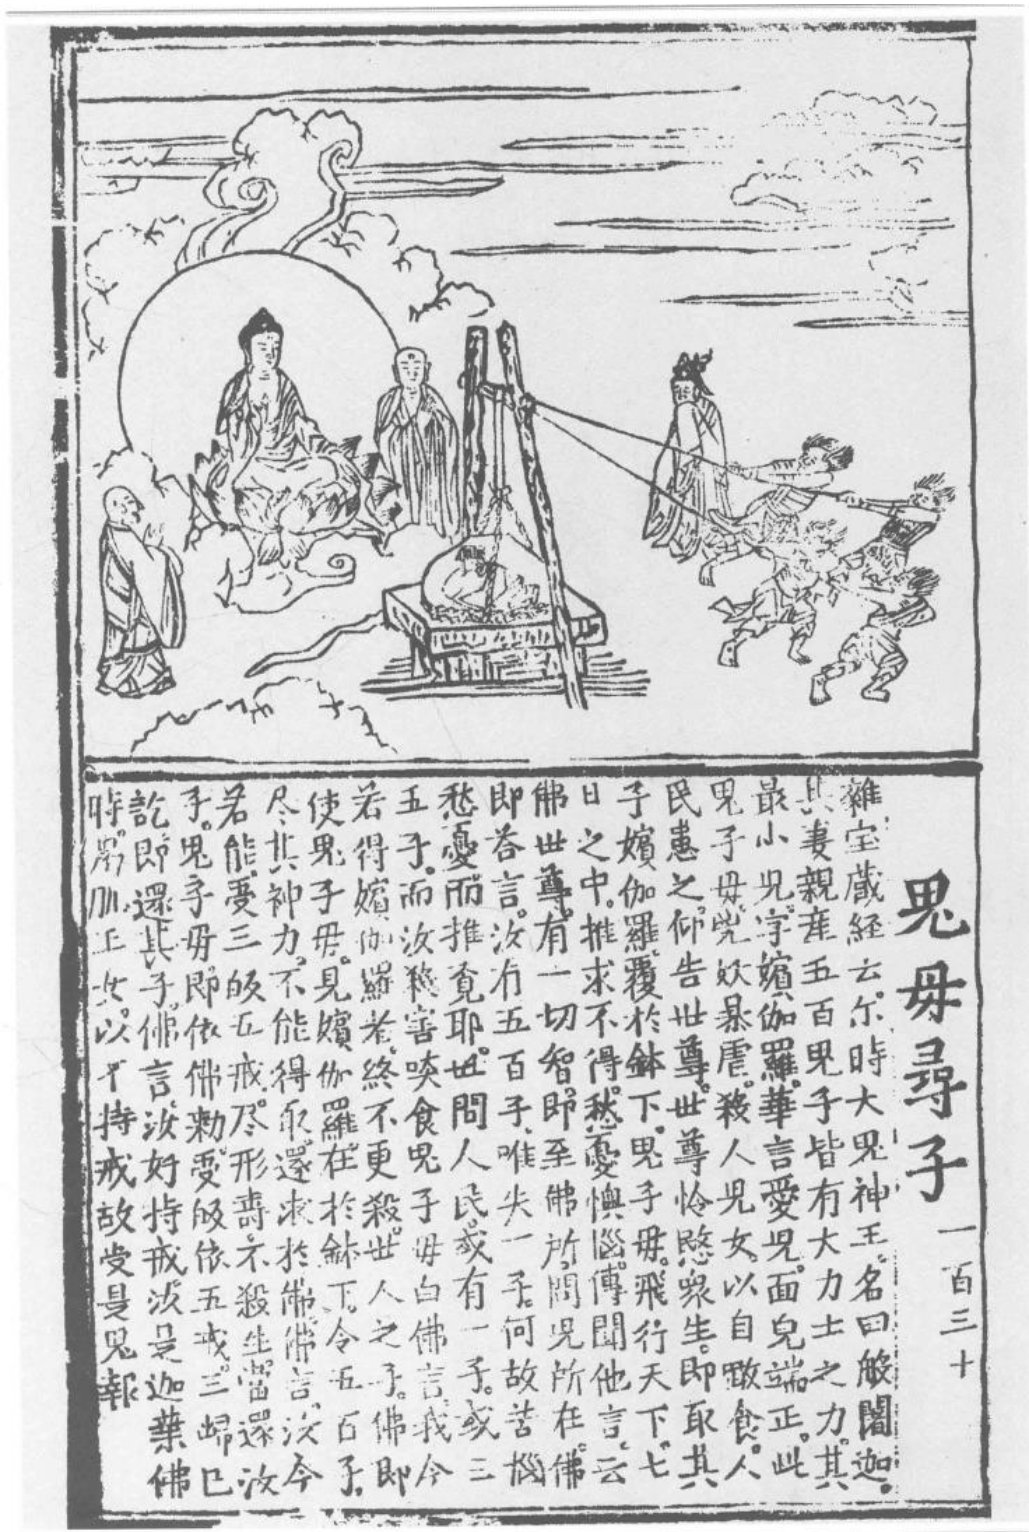 鬼母尋子
一百三十
雜宝蔵経云尒時大鬼神王名曰般闍迦
其妻親産五百鬼子皆有大力士之力其
最小児字嬪伽羅華言愛児面皃端正此
鬼子母兇妖暴虐殺人児女以自噉食人
民患之仰告世尊世尊怜愍衆生即取其
子嬪伽羅覆於鉢下鬼子母飛行天下七
日之中推求不得愁憂懊惱傳聞他言云
佛世尊有一切智即至佛所問児所在佛
即荅言汝有五百子唯失一子何故苦惱
愁憂而推覔耶世間人民或有一子或三
五子而汝殺害啖食鬼子母白佛言我今
若得嬪伽羅者終不更殺世人之子佛即
使鬼子母見嬪伽羅在於鉢下令五百子
尽其神力不能得取還求於佛佛言汝今
若能受三皈五戒尽形壽不殺生當還汝
子鬼子母即依佛勅受皈依五戒三歸已
訖即還其子佛言汝好持戒汝是迦葉佛
時王女以不持戒故受是鬼報